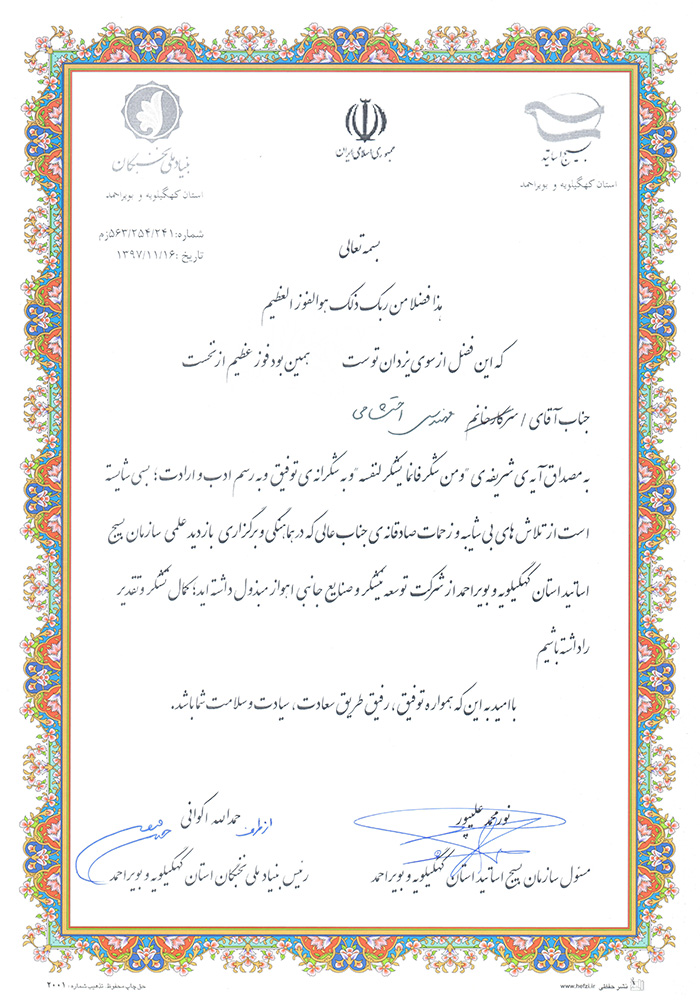 بنیاد ملی نخبگان
استان کهگیلویه و بویراحمد
جمهوری اسلامی ایران
بسیج اساتید
استان کهگیلویه و بویراحمد
شماره:۵۶۳/۲۵۴/۲۴۱زم
تاریخ :۱۳۹۷/۱۱/۱۶
بسمه تعالی
هذا فضلا من ربک ذلک هو الفوز العظیم
که این فضل از سوی یزدان توست همین بود فوز عظیم از نخست
جناب آقای / سرکار خانم مهندس احتشامی
به مصداق آیه ی شریفه ی "ومن شکر فانما یشکر لنفسه" و به شکرانه ی توفیق و به رسم ادب و ارادت؛ بسی شایسته
است از تلاش های بی شایبه و زحمات صادقانه ی جناب عالی که در هماهنگی و برگزاری بازدید علمی سازمان بسیج
اساتید استان کهگیلویه و بویراحمد از شرکت توسعه نیشکر و صنایع جانبی اهواز مبذول داشته اید؛ کمال تشکر و تقدیر
را داشته باشیم
باامید به این که همواره توفیق، رفیق طریق سعادت، سیادت و سلامت شما باشد.
نورمحمد علیپور
مسئول سازمان بسیج اساتید استان کهگیلویه و بویراحمد
از طرف حمدالله اکوانی
رئیس بنیاد ملی نخبگان استان کهگیلویه و بویراحمد
نشر حفاظی www.hefzi.ir
حق چاپ محفوظ تذهیب شماره: ۲۰۰۱